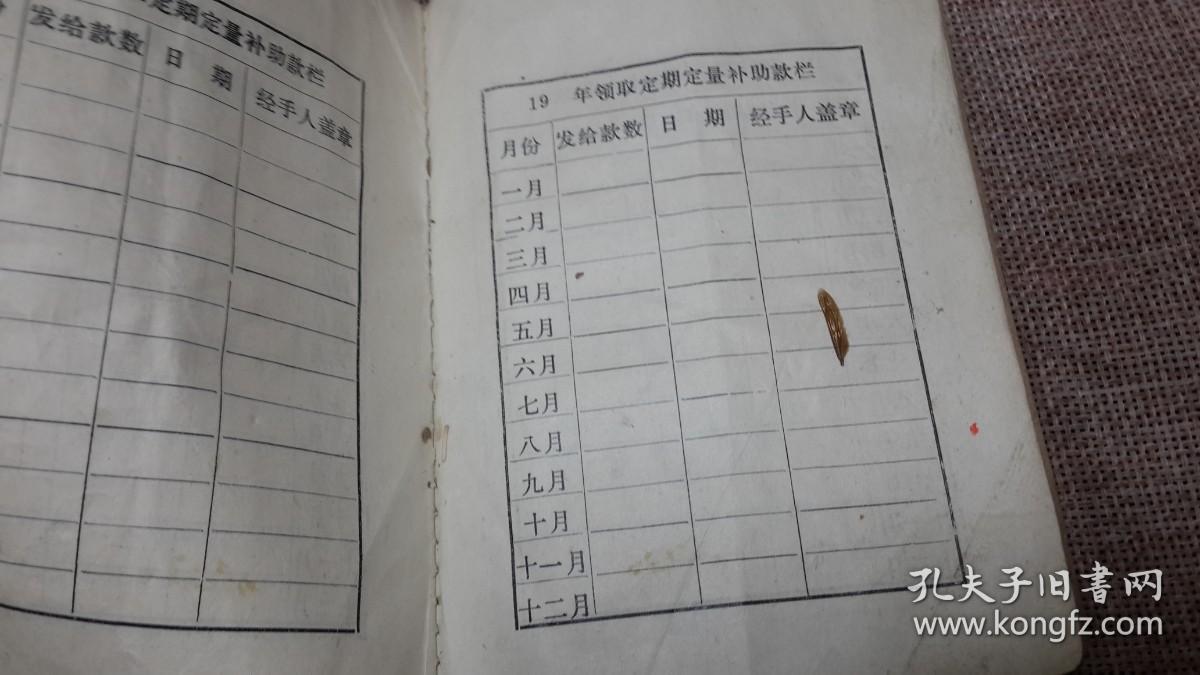 定期定量补助款栏
发给款数 日 期 经手人盖章
19 年领取定期定量补助款栏
月份 发给款数 日 期 经手人盖章
一月
二月
三月
四月
五月
六月
七月
八月
九月
十月
十一月
十二月
孔夫子旧书网
www.kongfz.com